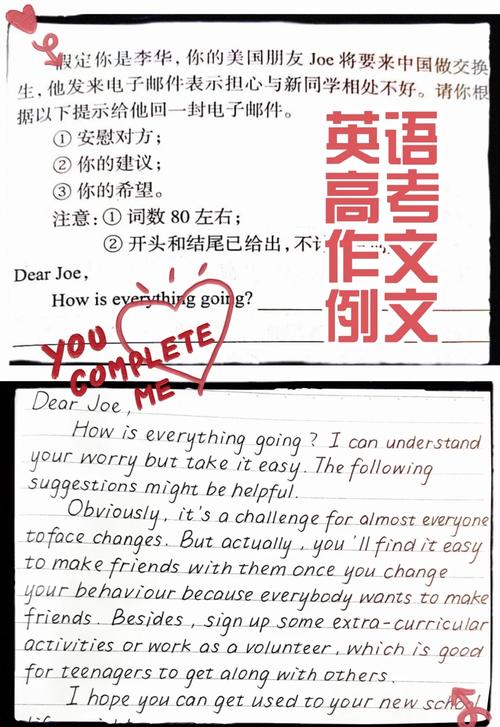 假定你是李华，你的美国朋友 Joe 将要来中国做交换
生，他发来电子邮件表示担心与新同学相处不好。请你根
据以下提示给他回一封电子邮件。
① 安慰对方；
② 你的建议；
③ 你的希望。
注意：① 词数 80 左右；
② 开头和结尾已给出，不
英语
高考
作文
例文
Dear Joe,
How is everything going?
YOU
COMPLETE
ME
Dear Joe,
How is everything going? I can understand
your worry but take it easy. The following
suggestions might be helpful.
Obviously, it's a challenge for almost everyone
toface changes. But actually, you'll find it easy
to make friends with them once you change
your behaviour because everybody wants to make
friends. Besides, sign up some extra-curricular
activities or work as a volunteer, which is good
for teenagers to get along with others.
I hope you can get used to your new school